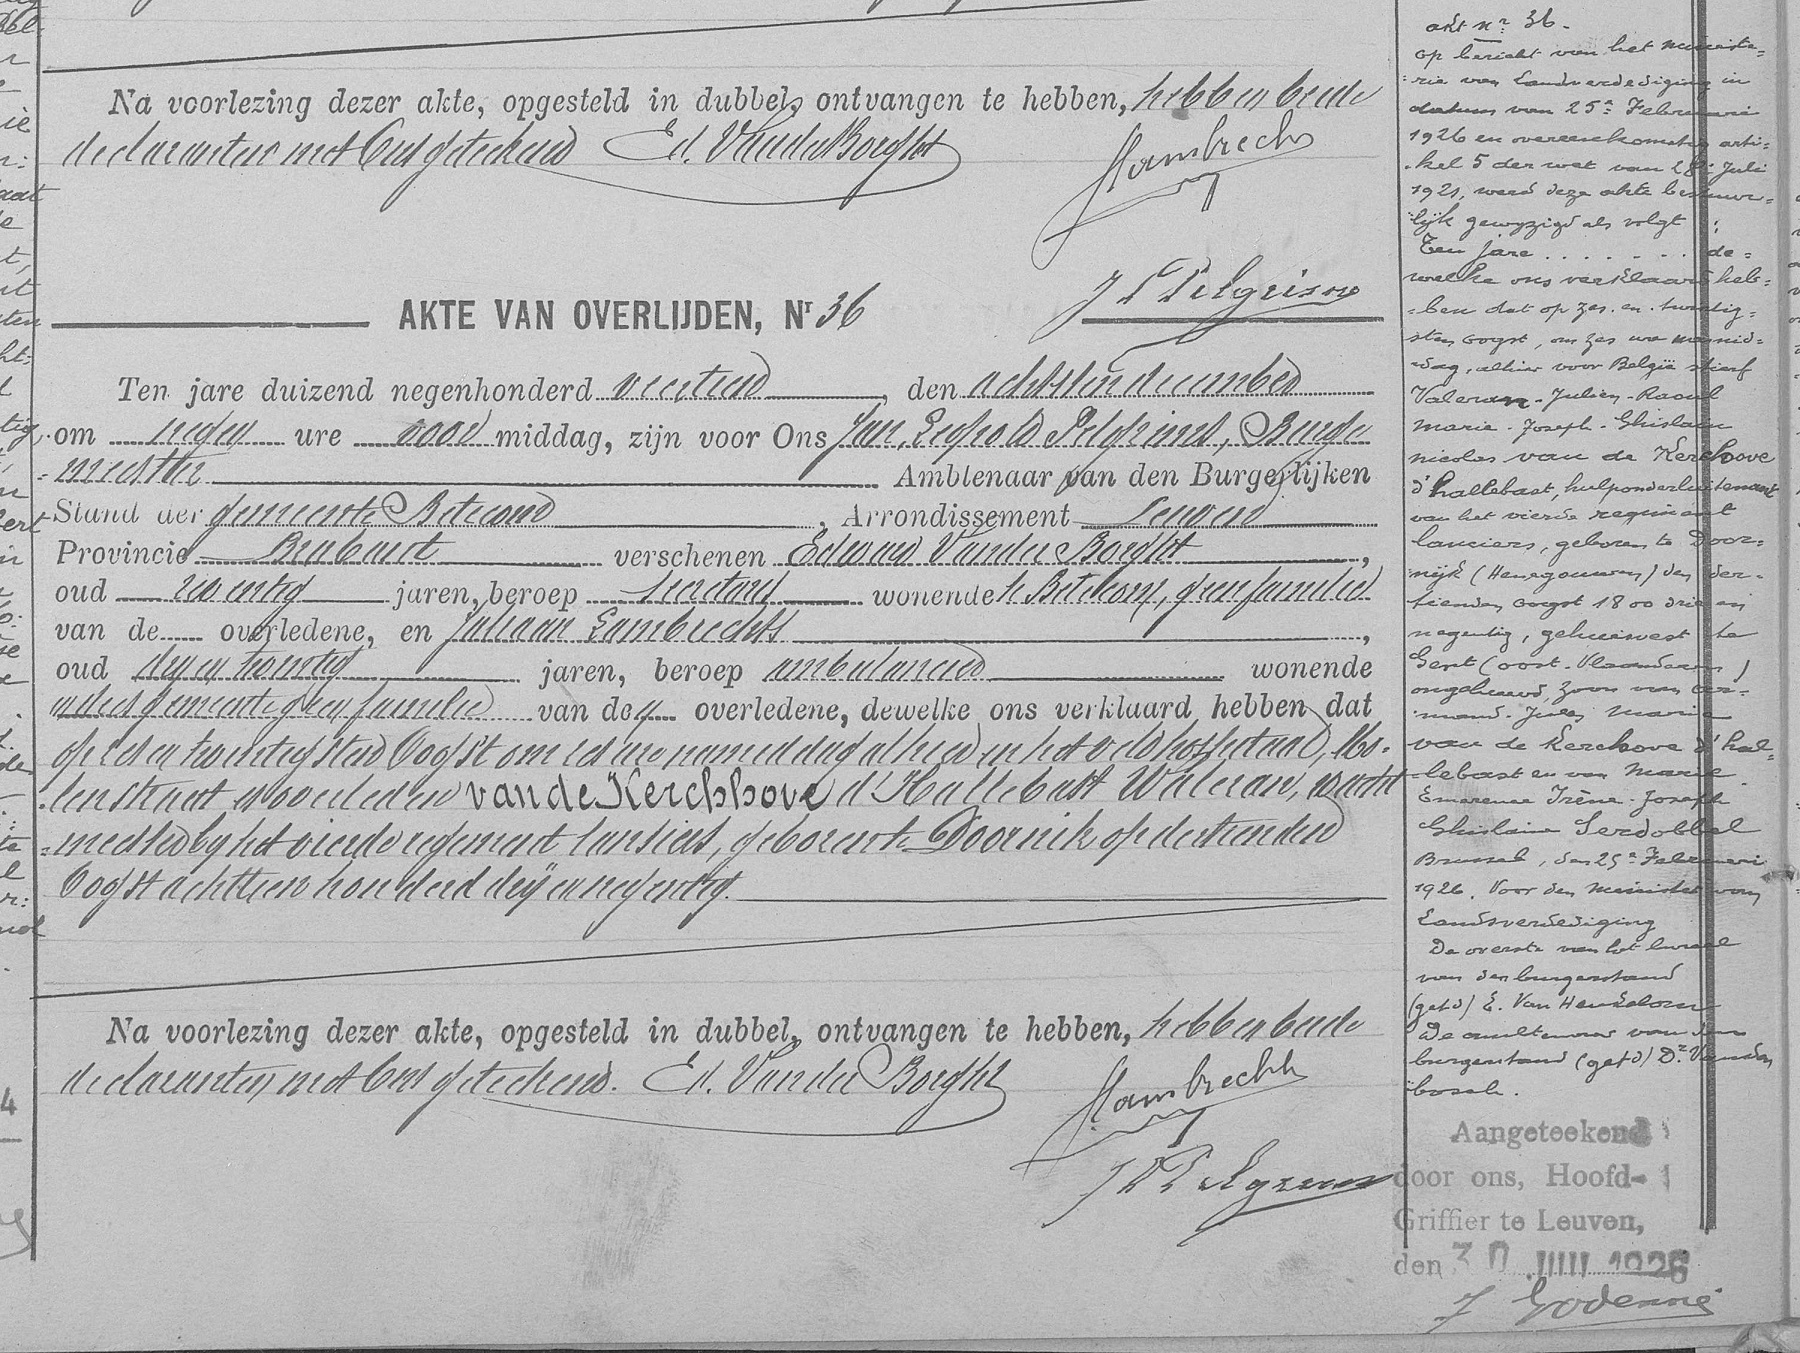 Na voorlezing dezer akte, opgesteld in dubbel, ontvangen te hebben, hebben beide
declaranten met Ons geteekend Ed. VanderBorght
Lambrechts
J L Pelgrims
AKTE VAN OVERLIJDEN, Nr 36
Ten jare duizend negenhonderd veertien, den achtsten december
om negen ure voor middag, zijn voor Ons Jan, Leopold Pelgrims, Burge
meester Ambtenaar van den Burgerlijken
Stand der gemeente Betecom, Arrondissement Leuven
Provincie Brabant verschenen Edward Vander Borght,
oud twentig jaren, beroep secretaris wonende te Betekom, geen familie
van de overledene, en Juliaan Lambrechts,
oud dry en twentig jaren, beroep ambulancier wonende
in dees gemeente geen familie van den overledene, dewelke ons verklaard hebben dat
op zes en twentigsten Oogst om zes ure namiddag alhier in het veldhospitaal, Mo-
lenstraat is overleden van de Kerchhove d'Hallebast Waleran, wacht
meester by het vierde regiment lansiers, geboren te Doornik op dertienden
Oogst achttien honderd dry en negentig.
Na voorlezing dezer akte, opgesteld in dubbel, ontvangen te hebben, hebben beide
declaranten met Ons geteekend. Ed. Vander Borght
Lambrechts
J L Pelgrims
akt nr 36.
op bericht van het ministe=
rie van Landverdediging in
datum van 25n Februari
1926 en overeenkomstig arti=
kel 5 der wet van 28n Juli
1921, werd deze akte bestuur=
lijk gewyzigd als volgt :
Ten jare . . . . . . . de=
welke ons verklaard heb=
ben dat op zes. en. twintig=
sten oogst, om zes ure namid=
dag, alhier voor België stierf
Valeran. Julien. Raoul
Marie. Joseph. Ghislain
Nicolas van de Kerchove
d'hallebast, hulponderluitenant
van het vierde regiment
lanciers, geboren te Door=
nijk (Henegouwen) den der=
tienden oogst 1800 drie en
negentig, gehuisvest te
Gent (oost. Vlaanderen)
ongehuwd, zoon van Ar=
mand. Jules Marie
van de Kerchove d'hal=
lebast en van Marie
Emerence Irène. Joseph
Ghislaine Serdobbel
Brussel, den 25n Februari
1926. Voor den Minister van
Landsverdediging
De overste van het bureel
van den burgerstand
(get.d) E. Van Henxelom
De ambtenaar van den
burgerstand (get.d) Dr Vanden
bosch.
Aangeteekend
door ons, Hoofd-
Griffier te Leuven,
den 30 JUIL 1926
J Godenne